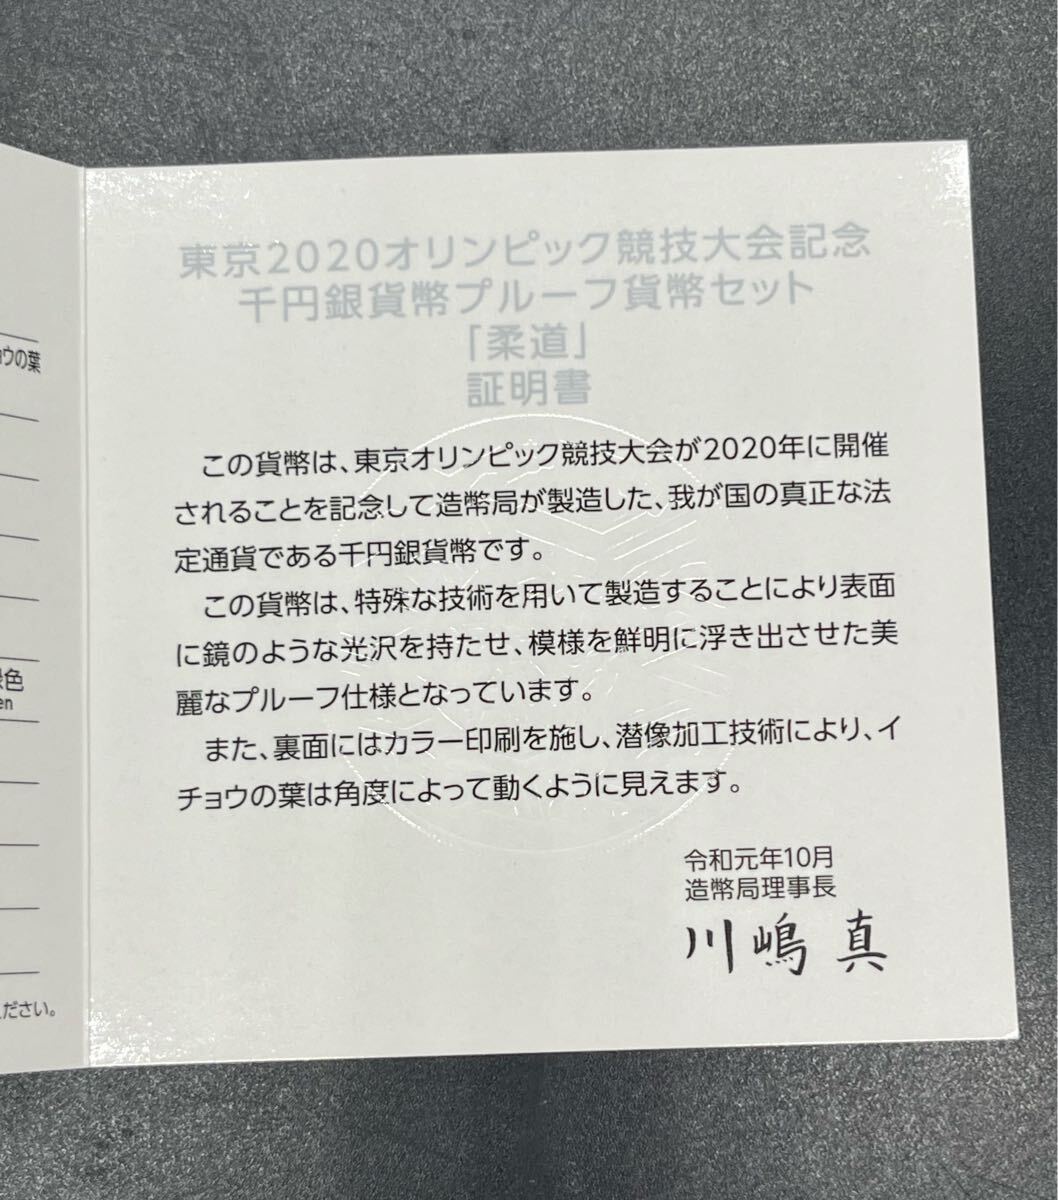 ョウの葉
色
en
ださい。
東京2020オリンピック競技大会記念
千円銀貨幣プルーフ貨幣セット
「柔道」
証明書
この貨幣は、東京オリンピック競技大会が2020年に開催
されることを記念して造幣局が製造した、我が国の真正な法
定通貨である千円銀貨幣です。
この貨幣は、特殊な技術を用いて製造することにより表面
に鏡のような光沢を持たせ、模様を鮮明に浮き出させた美
麗なプルーフ仕様となっています。
また、裏面にはカラー印刷を施し、潜像加工技術により、イ
チョウの葉は角度によって動くように見えます。
令和元年10月
造幣局理事長
川嶋 真